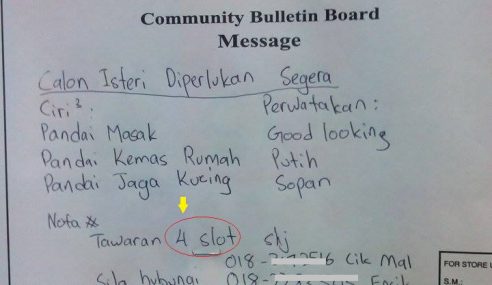 Community Bulletin Board
Message
Calon Isteri Diperlukan Segera
Ciri²: Perwatakan:
Pandai Masak Good looking
Pandai Kemas Rumah Putih
Pandai Jaga Kucing Sopan
Nota *
Tawaran 4 slot shj
018- 6 Cik Mal
Sila hubungi 018-
FOR STORE
S.M.: